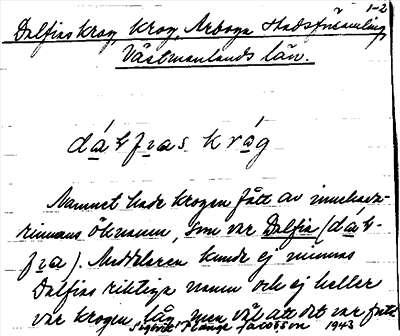 1-2
Dalfias krog, krog, Arboga stadsförsamling,
Västmanlands län.
dalfias kråg
Namnet hade krogen fått av innehava-
rinnans öknamn, som var Dalfia (dal-
fia). Meddelaren kunde ej minnas
Dalfias riktiga namn och ej heller
var krogen låg, men väl att det var
Jacobson 1943